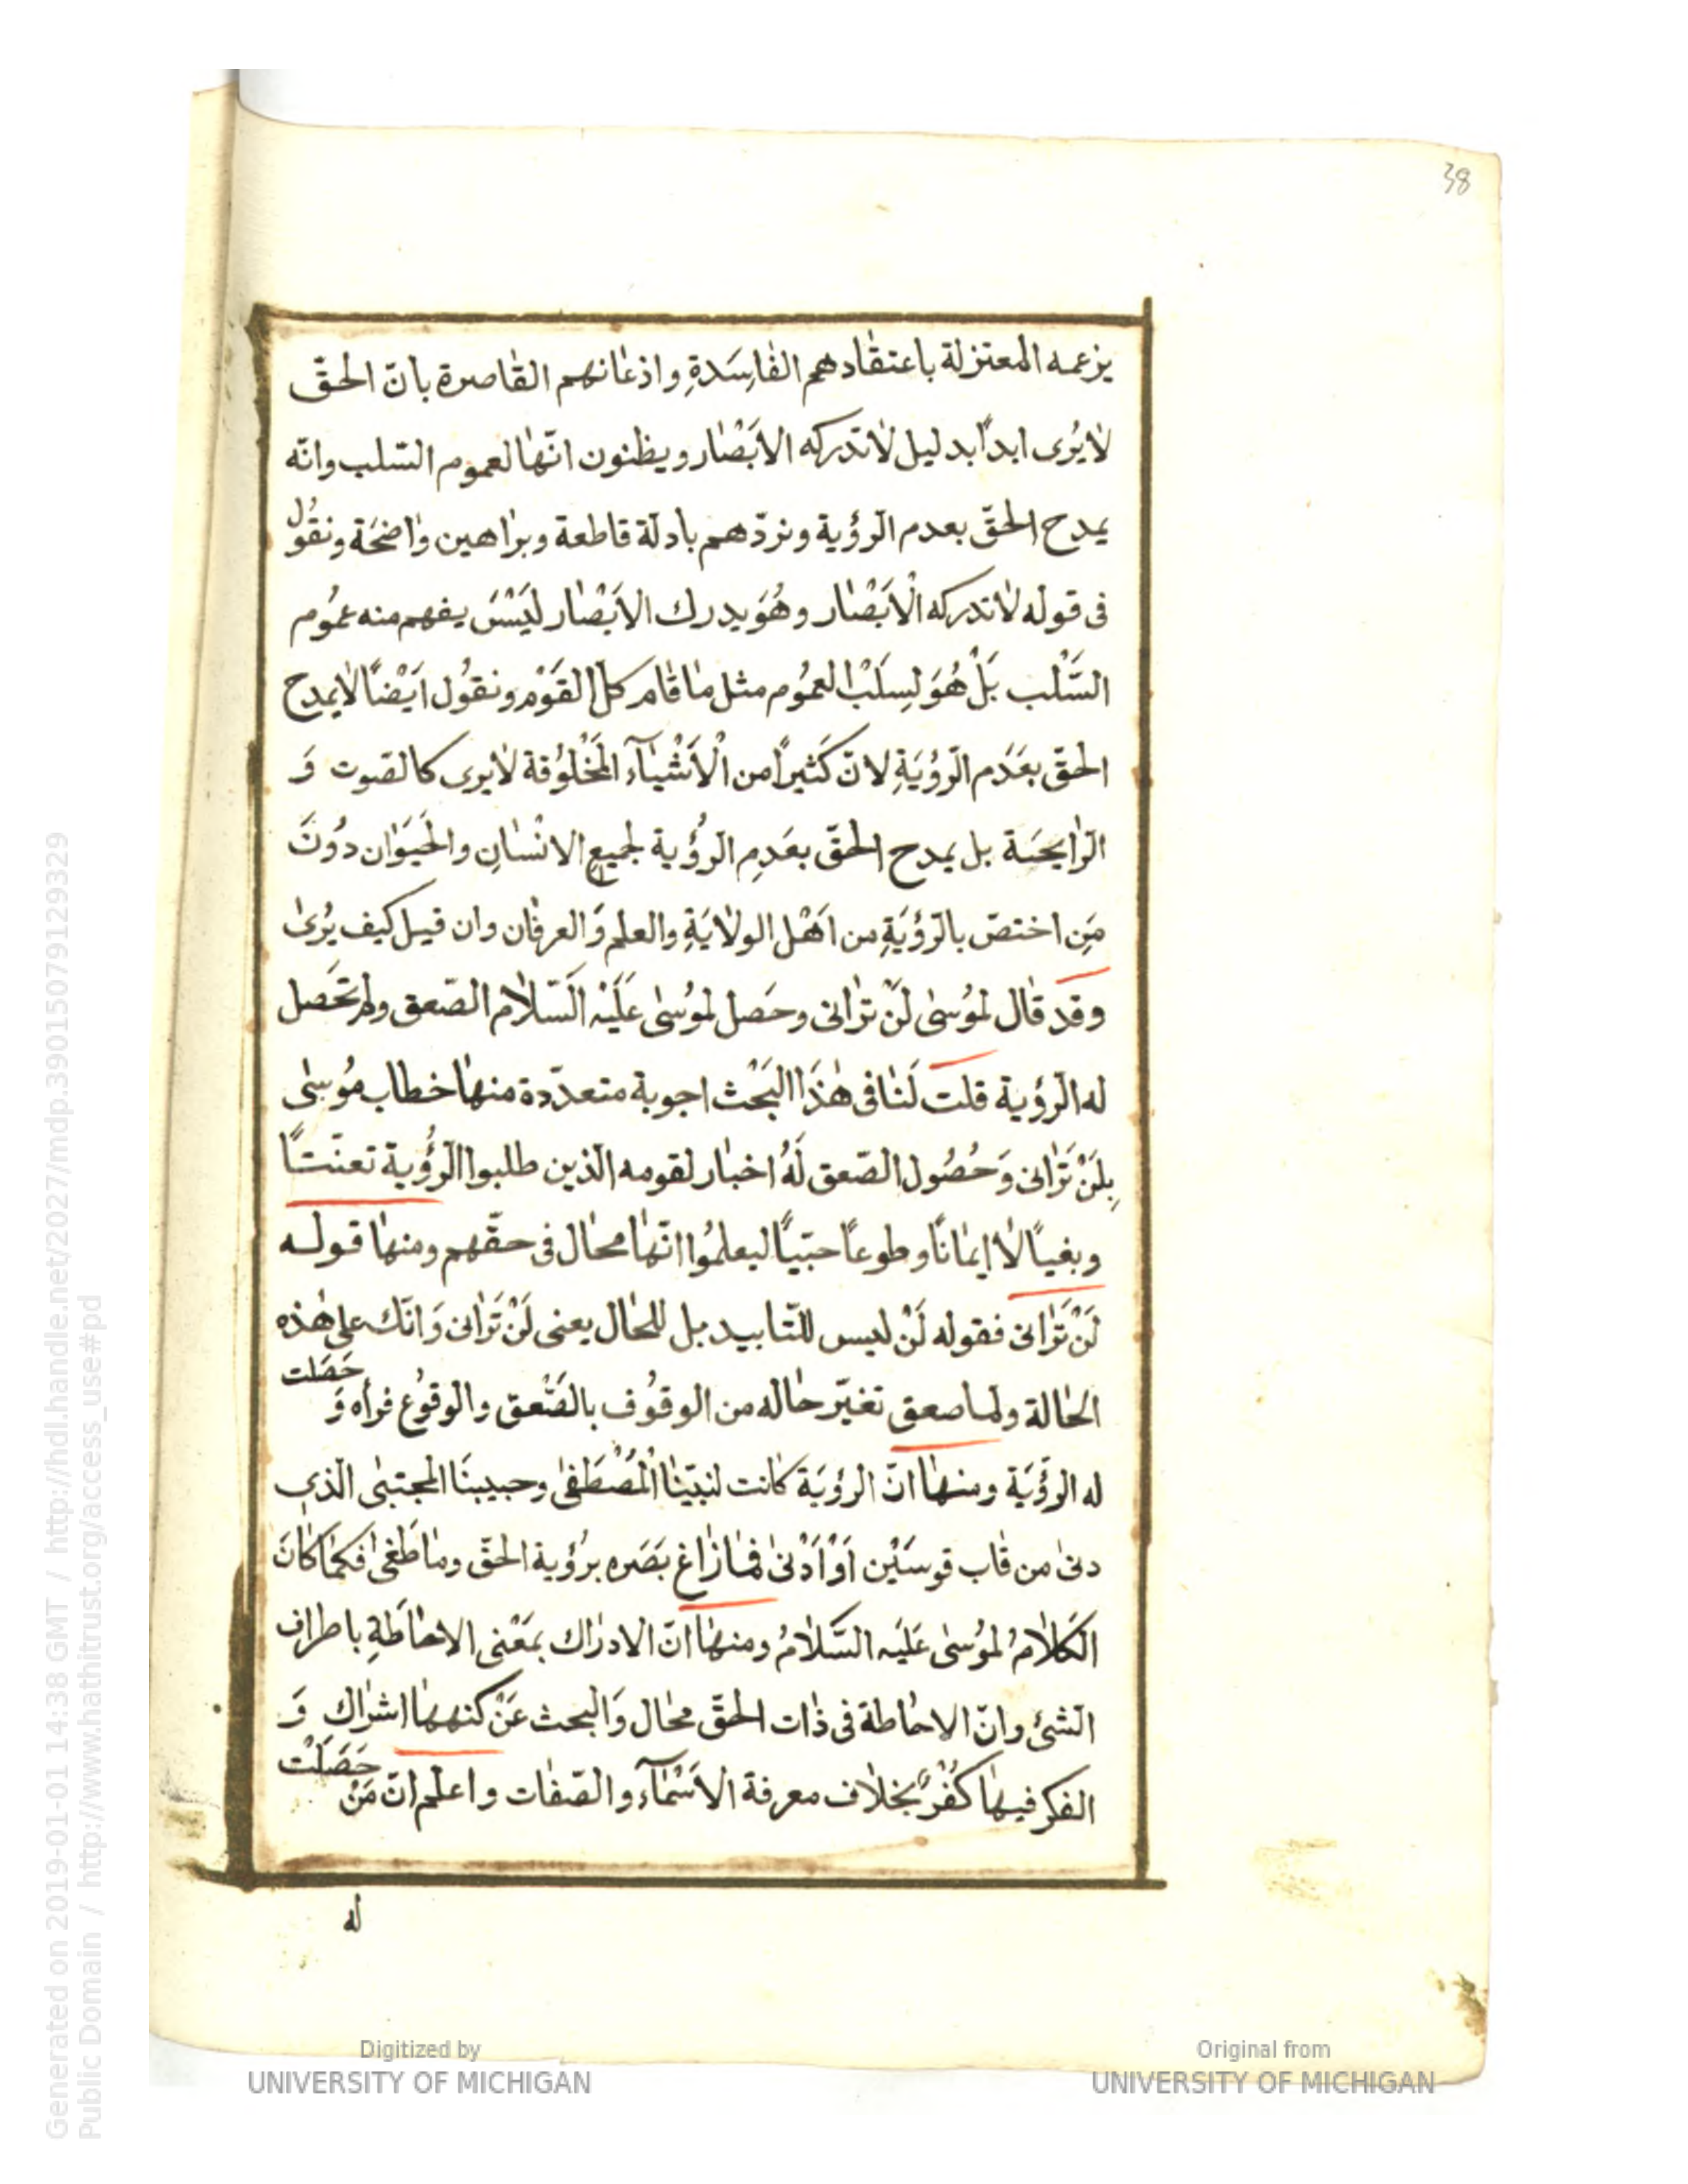 38
يزعمه المعتزلة باعتقادهم الفاسَدةِ واذعانهم القاصرة بانّ الحقّ
لا يُرى ابداً بدليل لا تدركه الابَصْار ويظنون انّها لعموم السّلب وانّه
يمدح الحقّ بعدم الرّؤية ونردّهم بادلّة قاطعة وبراهين واضحَة ونقُول
فى قوله لا تدركه الْابَصْار وهُوَ يدرك الابَصْار ليَسْسَ يفهم منه عمُوم
السَّلْب بَلْ هُوَ لِسِلَبْ العمُوم مثل ما قام كلّ القَوْم ونقوُل ايَضْاً لا يمدح
الحقّ بعَدَم الرّؤُيَةِ لانّ كَثيراً من الْاَشْيَآء المَخْلوُقة لا يرى كالصّوت وَ
الرّايحَة بل يمدح الحقّ بعَدِم الرّؤُية لجميع الانْسٰانِ والحَيَوٰان دوُنَ
مَنِ اختصّ بالرّؤيَةِ من اَهْل الولايَةِ والعلم وَالعرفان وان قيل كيف يُرىٰ
وقد قال لموُسىٰ لَنْ ترٰانى وحَصل لموُسىٰ عَلَيْه السَّلام الصّعق ولم تحَصل
له الرّؤية قلت لَنٰا فى هٰذَا البَحْث اجوبة متعدّدة منهٰا خطاب موُسىٰ
بِلَنْ تَرٰانى وَحُصُول الصّعق لَهُ اخبٰار لقومه الّذين طلبوا الرّؤُية تعنّتاً
وبغياً لا ايمانًا وطوعاً حبّيّاً ليعلموُا انّهٰا محٰال فى حقّهم ومنهٰا قوله
لَنْ تَرٰانى فقوله لَنْ ليس للتّابيد بل للحٰال يعنى لَنْ تَرٰانى وَانّك على هٰذه
الحٰالة ولما صعق تغيّر حٰاله من الوقوُف بالصَّعق والوقوُع فرأه وَ حَصَلت
له الرّؤُيَة ومنهٰا انّ الرؤيَة كٰانت لنبيّنٰا المُصْطَفىٰ وحبيبنَا المجتبىٰ الّذى
دنىٰ من قٰاب قوسَيْن اَوْ اَدْنىٰ فمٰا زٰاغ بَصَره برُؤية الحقّ ومٰا طَغىٰ فكمٰا كٰانَ
الكَلاٰمُ لموُسىٰ عَليَه السَّلامُ ومنهٰا انّ الادرٰاك بمَعْنى الاحٰاطَةِ باطراف
الشئ وانّ الاحٰاطة فى ذٰات الحقّ محٰال وَالبحث عَنْ كنههٰا اشرٰاك وَ
الفكر فيهٰا كُفْرٌ بخلاٰف معرفة الاَسْمٰآء والصّفٰات واعلم انّ مَنْ حَصَلَتْ
له
Generated on 2019-01-01 14:38 GMT / http://hdl.handle.net/2027/mdp.39015079129329
Public Domain / http://www.hathitrust.org/access_use#pd
Digitized by
UNIVERSITY OF MICHIGAN
Original from
UNIVERSITY OF MICHIGAN